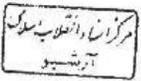 مرکز اسناد انقلاب اسلامی
آرشیو